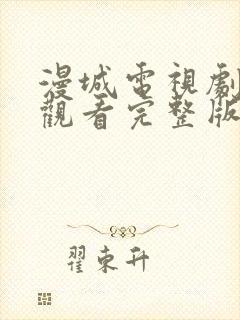 漫城電視劇
觀看完整版
翟東升